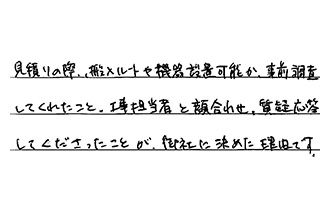 見積りの際、搬入ルートや機器設置可能か、事前調査
してくれたこと。工事担当者と顔合わせ、質疑応答
してくださったことが、御社に決めた理由です。